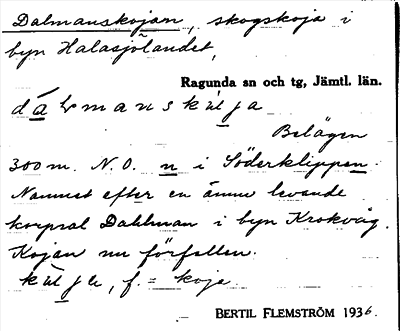 Dalmanskojan, skogskoja i
byn Halasjölandet,
Ragunda sn och tg, Jämtl. län.
Belägen
300 m. N.O. n i Söderklippen.
Namnet efter en ännu levande
korpral Dahlman i byn Krokvåg.
Kojan nu förfallen.
f. = koja
BERTIL FLEMSTRÖM 1936.